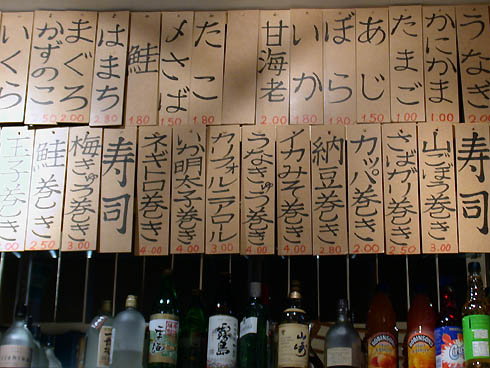 うなぎ
2.0
かにかま
1.00
たまご
1.00
あじ
1.50
ぼら
1.80
いか
1.80
甘海老
2.00
たこ
1.80
〆さば
1.50
鮭
1.80
はまち
まぐろ
2.00
かずのこ
2.50
いくら
寿司
山ごぼう巻き
3.00
さばガリ巻き
2.50
カッパ巻き
2.00
納豆巻き
2.80
イカみそ巻き
3.00
うなきゅう巻き
3.00
カリフォルニアロール
3.00
いか明太子巻き
4.00
ネギトロ巻き
4.00
寿司
梅きゅう巻き
3.00
鮭巻き
2.50
玉子巻き
2.00
霧島
山崎
ROBINSONS
ROBINSONS